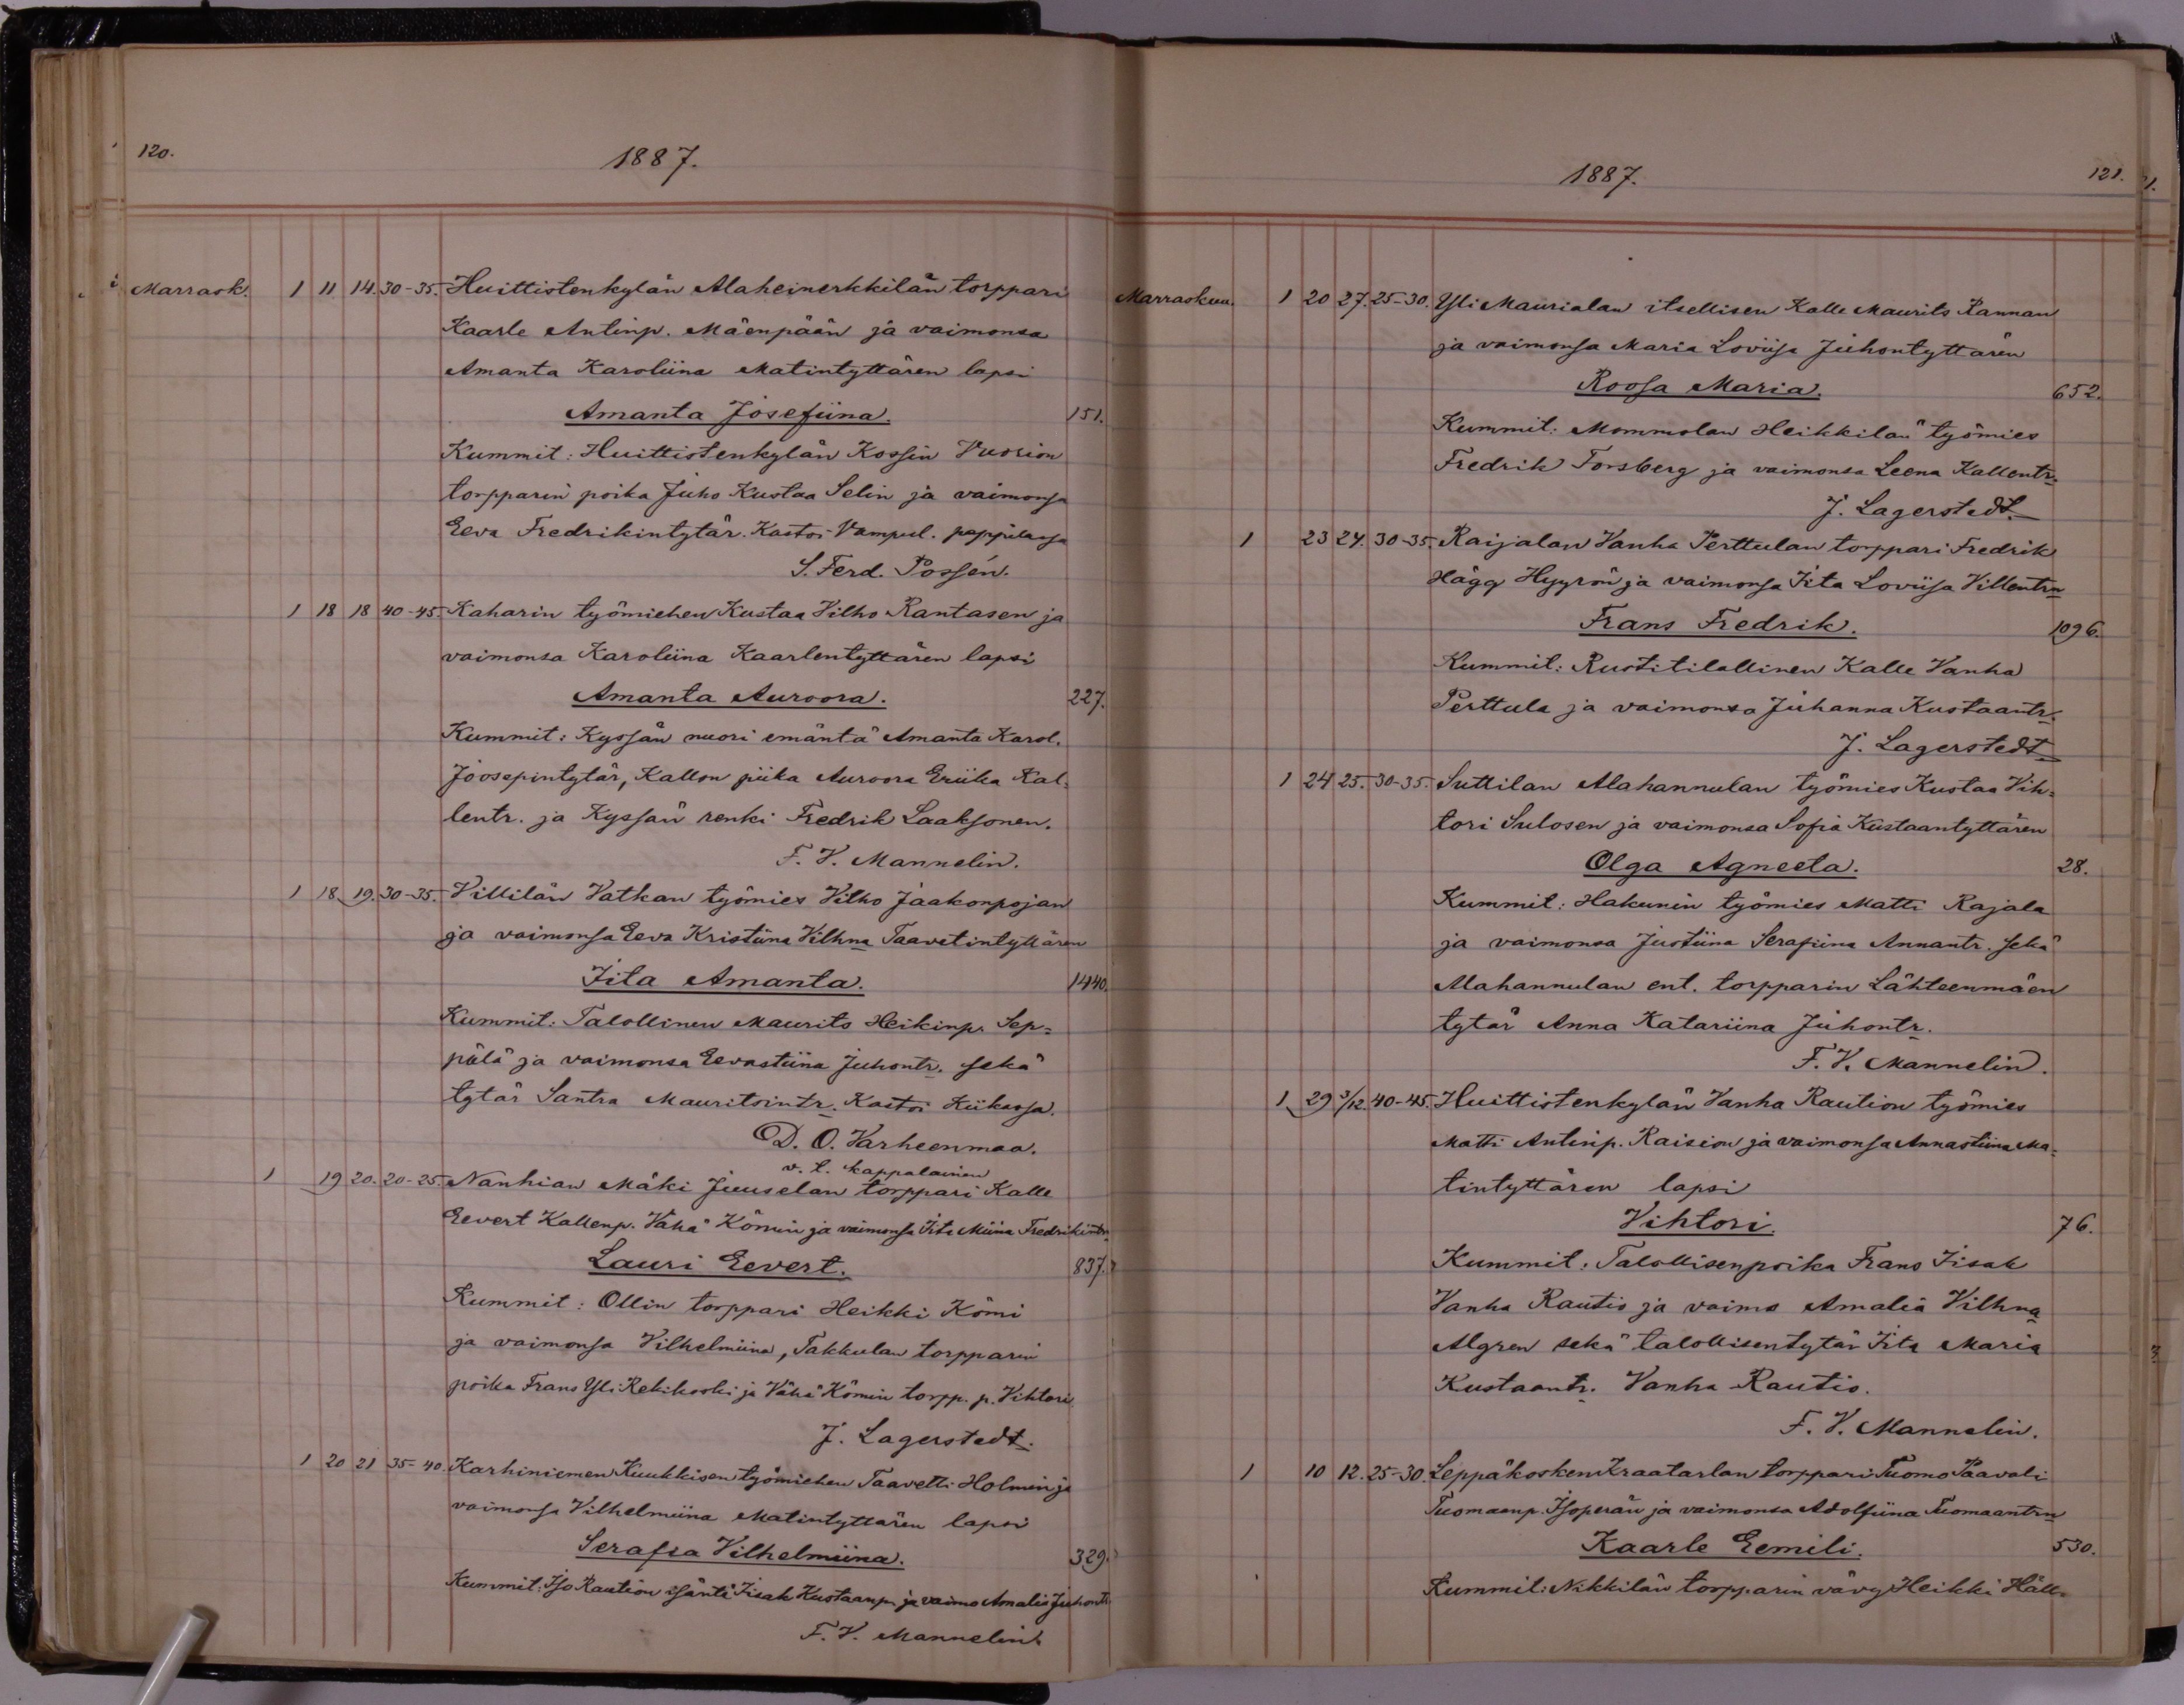 120.
1887.
Marrask. 1 11 14. 30-35. Huittistenkylän Alaheinerkkilän torppari
Kaarle Antinp. Mäenpään ja vaimonsa
Amanta Karoliina Matintyttären lapsi
Amanta Josefiina. 151.
Kummit: Huittistenkylän Kossin Vuorion
torpparin poika Juho Kustaa Selin ja vaimonsa
Eeva Fredrikintytär. Kastoi Vampul. pappilassa
S. Ferd. Possén.
1 18 18 40-45. Kaharin työmiehen Kustaa Vilho Rantasen ja
vaimonsa Karoliina Kaarlentyttären lapsi
Amanta Auroora. 227.
Kummit: Kyssän nuori emäntä Amanta Karol.
Joosepintytär, Kallon piika Auroora Eriika Kal-
lentr. ja Kyssän renki Fredrik Laaksonen.
F. V. Mannelin.
1 18 19. 30-35. Villilän Vatkan työmies Vilho Jaakonpojan
ja vaimonsa Eeva Kristiina Vilhna Taavetintyttären
Iita Amanta. 1440.
Kummit: Talollinen Maurits Heikinp. Sep-
pälä ja vaimonsa Eevastiina Juhontr. sekä
tytär Santra Mauritsintr. Kastoi Kiikassa.
D. O. Varheenmaa.
v. t. kappalainen
1 19 20. 20-25. Nanhian Mäki Juuselan torppari Kalle
Eevert Kallenp. Vähä Kömin ja vaimonsa Iita Miina Fredrikintrn
Lauri Eevert. 837.
Kummit: Ollin torppari Heikki Kömi
ja vaimonsa Vilhelmiina, Takkulan torpparin
poika Frans Yli Rekikoski ja Vähä Kömin torpp. p. Vihtori
J. Lagerstedt.
1 20 21 35-40. Karhiniemen Kuukkisen työmiehen Taavetti Holmin ja
vaimonsa Vilhelmiina Matintyttären lapsi
Serafia Vilhelmiina. 329.
Kummit: Iso Raution isäntä Iisak Kustaanp. ja vaimo Amalia Juhontr
F. V. Mannelin.
1887.
121.
Marraskuu. 1 20 27. 25-30. Yli Maurialan itsellisen Kalle Maurits Rannan
ja vaimonsa Maria Loviisa Juhontyttären
Roosa Maria. 652.
Kummit: Mommolan Heikkilän työmies
Fredrik Forsberg ja vaimonsa Leena Kallentr.
J. Lagerstedt.
1 23 24. 30-35. Raijalan Vanha Perttulan torppari Fredrik
Hägg Hyyrön ja vaimonsa Iita Loviisa Villentrn
Frans Fredrik. 1096.
Kummit: Rustitilallinen Kalle Vanha
Perttula ja vaimonsa Juhanna Kustaantr.
J. Lagerstedt
1 24 25. 30-35. Suttilan Alahannulan työmies Kustaa Vih-
tori Sulosen ja vaimonsa Sofia Kustaantyttären
Olga Agneeta. 28.
Kummit: Hakunin työmies Matti Rajala
ja vaimonsa Justiina Serafiina Annantr. sekä
Alahannulan ent. torpparin Lähteenmäen
tytär Anna Katariina Juhontr.
F. V. Mannelin.
1 29 3/12. 40-45. Huittistenkylän Vanha Raution työmies
Matti Antinp. Raision ja vaimonsa Annastiina Ma-
tintyttären lapsi
Vihtori. 76.
Kummit: Talollisenpoika Frans Iisak
Vanha Rautio ja vaimo Amalia Vilhna
Algren sekä talollisentytär Iita Maria
Kustaantr. Vanha Rautio.
F. V. Mannelin.
1 10 12. 25-30. Leppäkosken Kraatarlan torppari Tuomo Paavali
Tuomaanp. Isoperän ja vaimonsa Adolfiina Tuomaantrn
Kaarle Eemili. 530.
Kummit: Nikkilän torpparin vävy Heikki Häll-